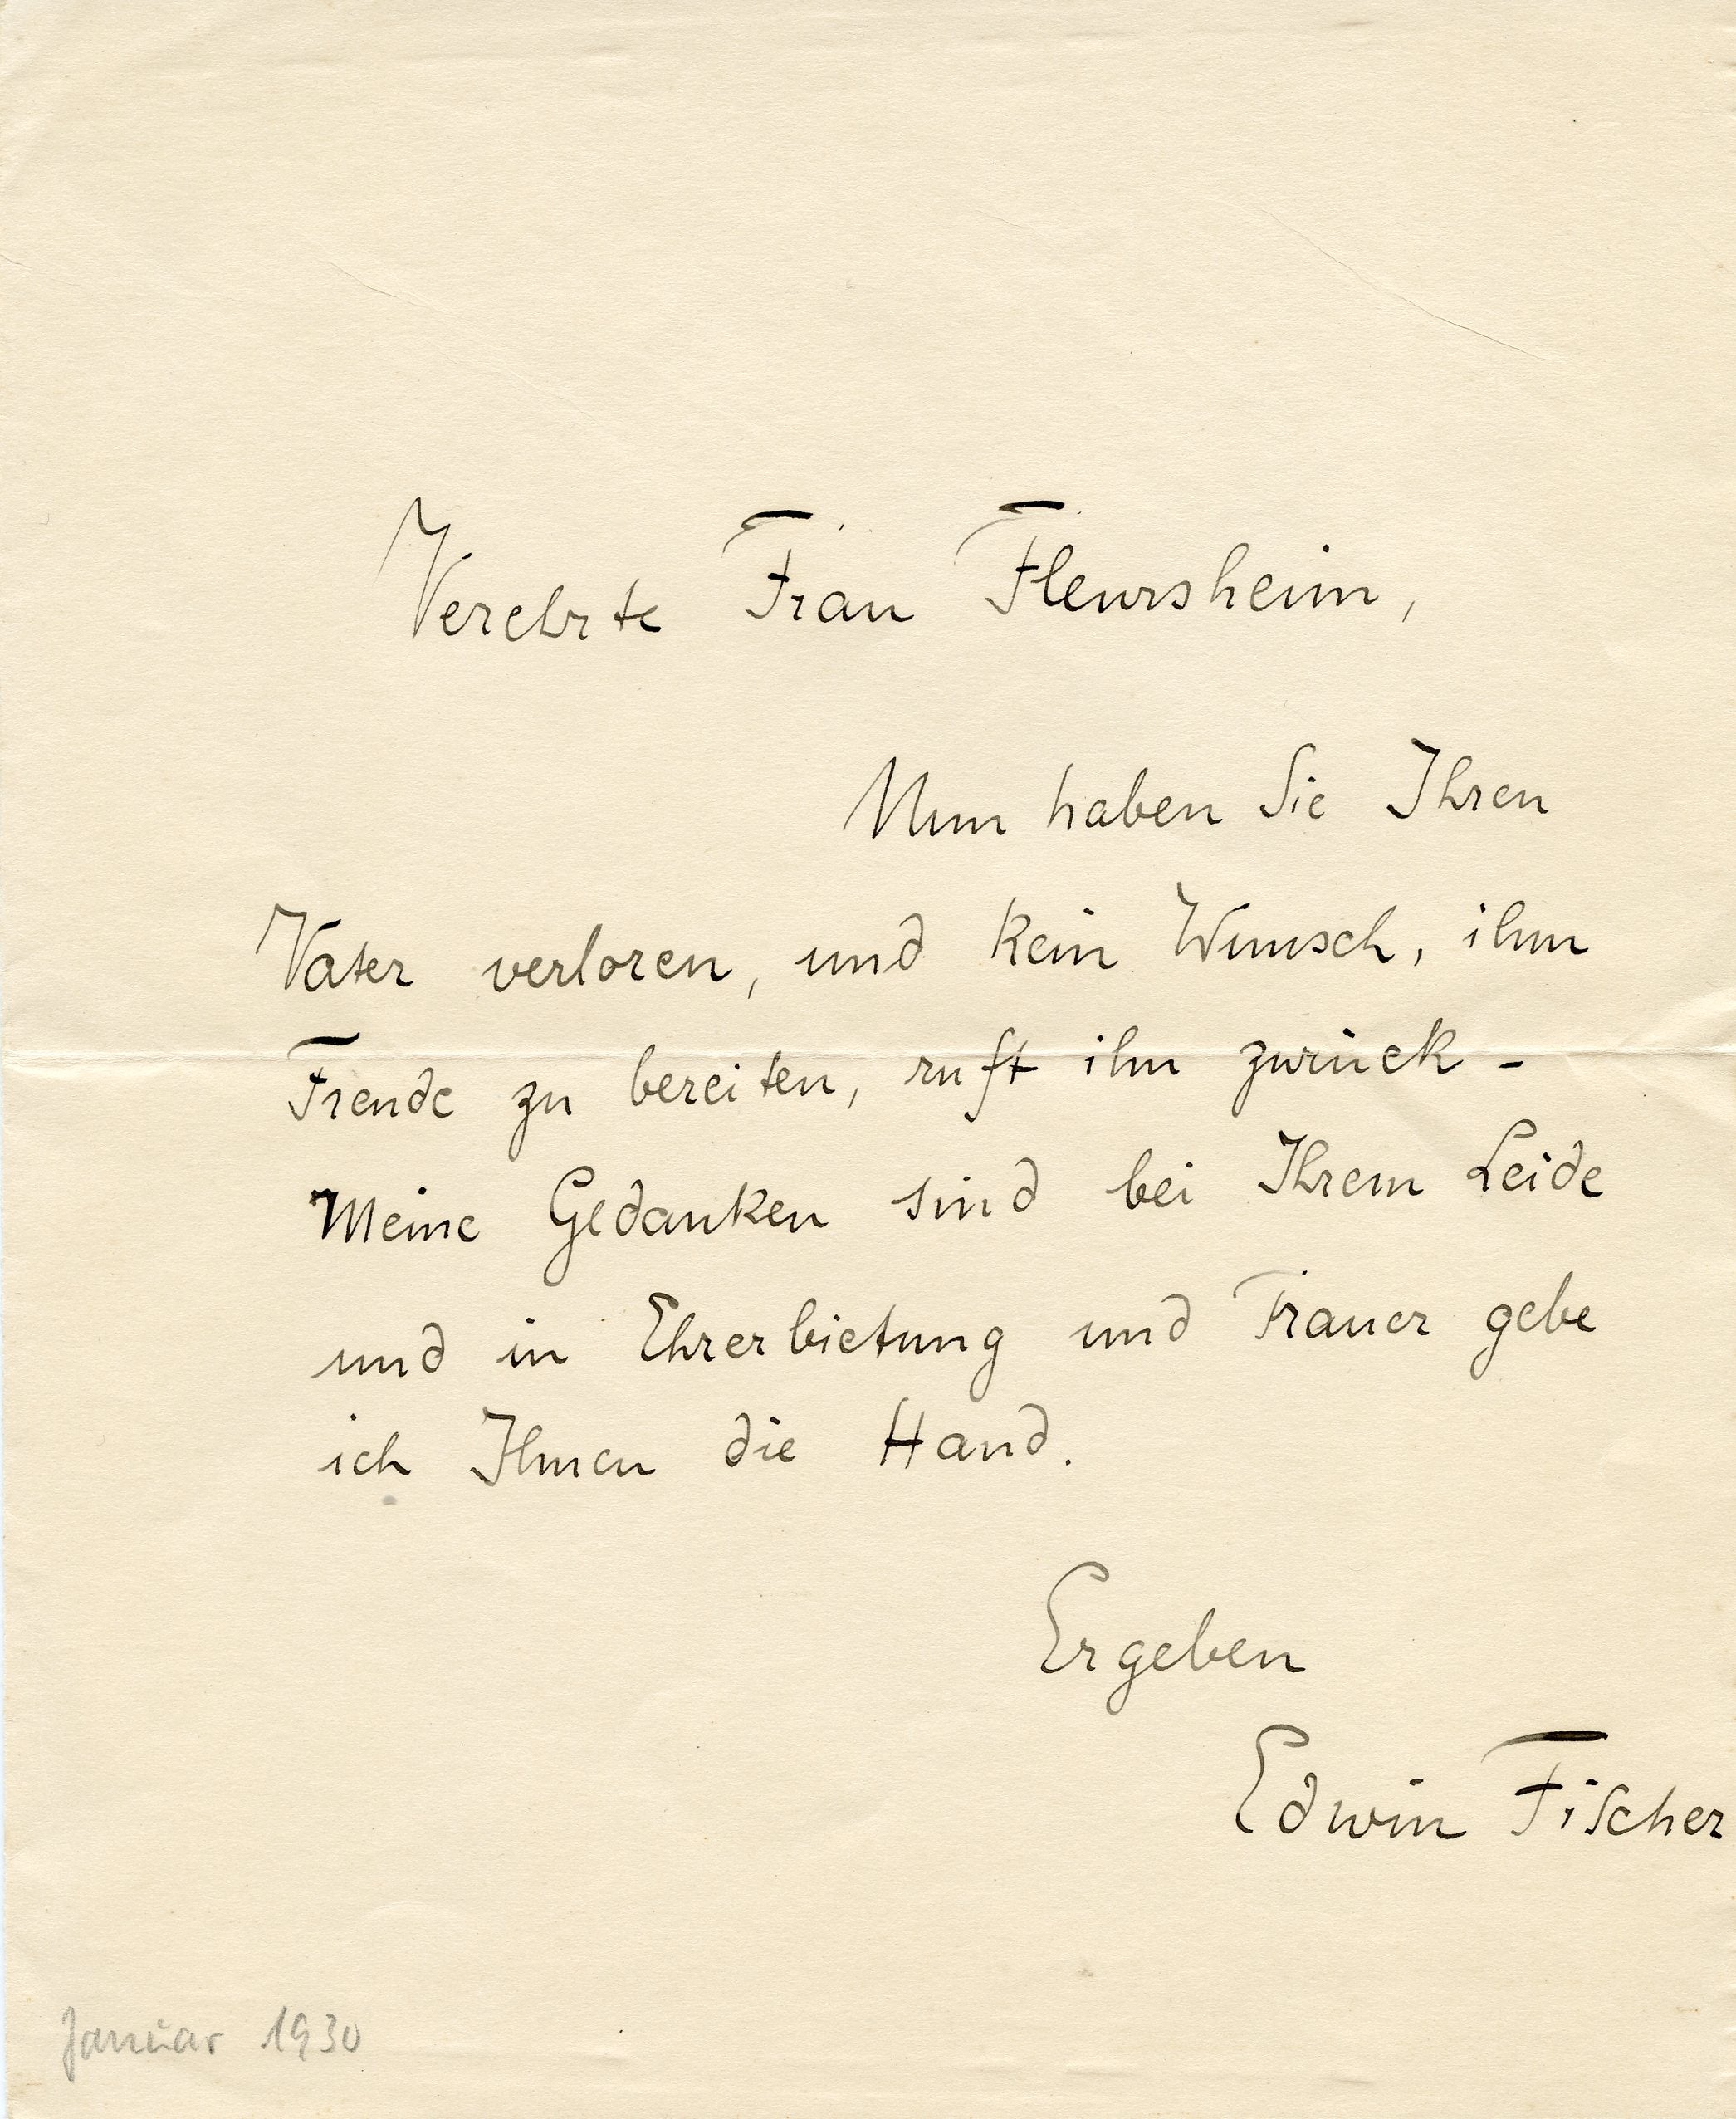 Verehrte Frau Fleursheim,
Nun haben Sie Ihren
Vater verloren, und kein Wunsch, ihm
Freude zu bereiten, ruft ihn zurück -
Meine Gedanken sind bei Ihrem Leide
und in Ehrerbietung und Trauer gebe
ich Ihnen die Hand.
Ergeben
Edwin Fischer
Januar 1930